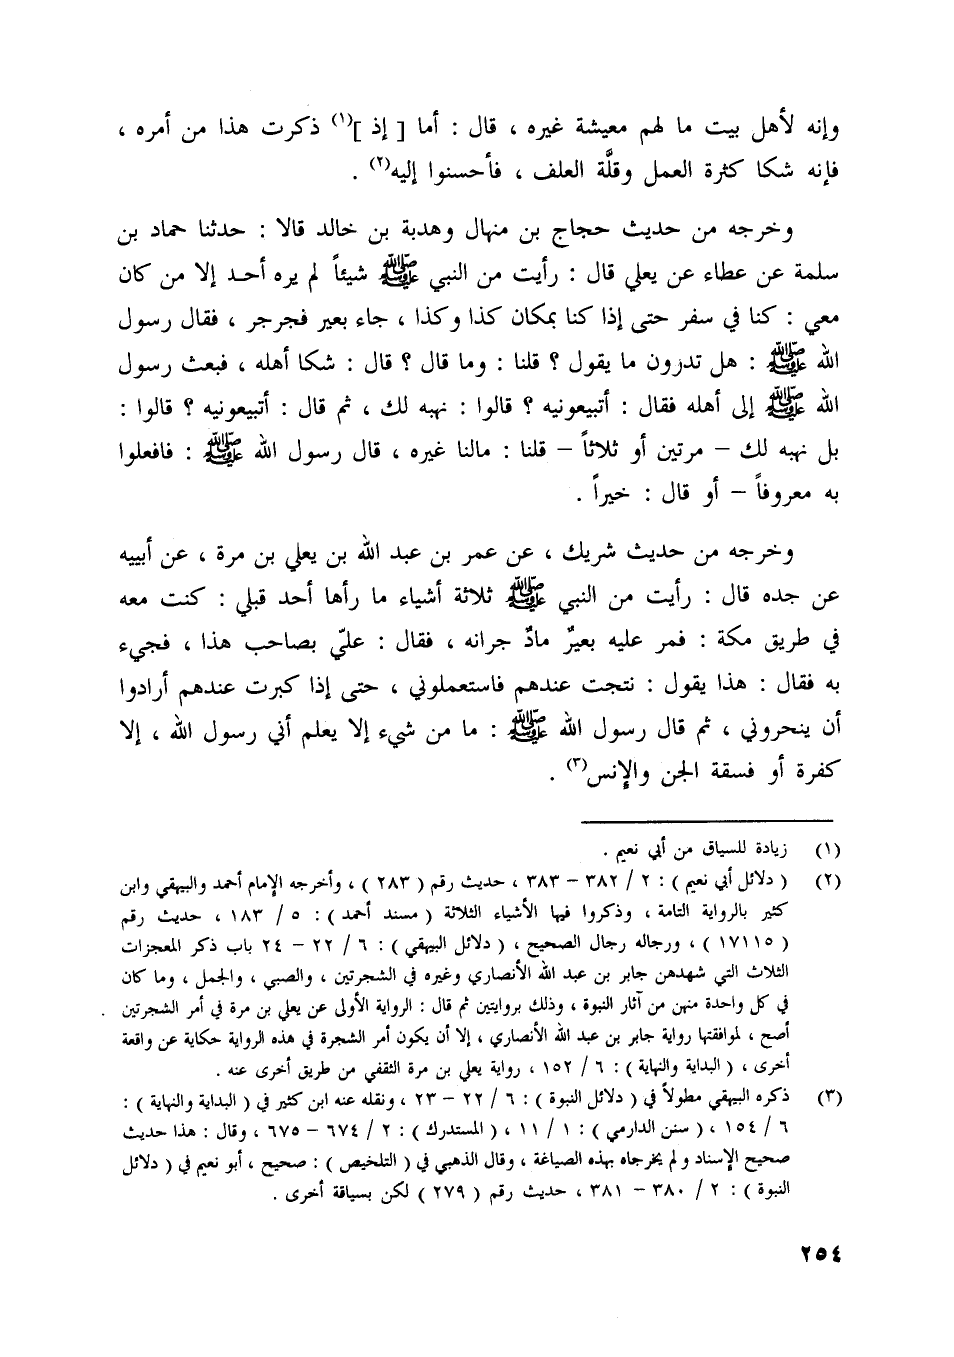 وإنه لأهل بيت ما لهم معيشة غيره ، قال : أما [ إذ ](١) ذكرت هذا من أمره ،
فإنه شكا كثرة العمل وقلَّة العلف ، فأحسنوا إليه(٢) .
وخرجه من حديث حجاج بن منهال وهدبة بن خالد قالا : حدثنا حماد بن
سلمة عن عطاء عن يعلي قال : رأيت من النبي ﷺ شيئاً لم يره أحد إلا من كان
معي : كنا في سفر حتى إذا كنا بمكان كذا وكذا ، جاء بعير فجرجر ، فقال رسول
الله ﷺ : هل تدرون ما يقول ؟ قلنا : وما قال ؟ قال : شكا أهله ، فبعث رسول
الله ﷺ إلى أهله فقال : أتبيعونيه ؟ قالوا : نهبه لك ، ثم قال : أتبيعونيه ؟ قالوا :
بل نهبه لك – مرتين أو ثلاثاً – قلنا : مالنا غيره ، قال رسول الله ﷺ : فافعلوا
به معروفاً – أو قال : خيراً .
وخرجه من حديث شريك ، عن عمر بن عبد الله بن يعلي بن مرة ، عن أبييه
عن جده قال : رأيت من النبي ﷺ ثلاثة أشياء ما رأها أحد قبلي : كنت معه
في طريق مكة : فمر عليه بعيرٌ مادٌ جرانه ، فقال : عليّ بصاحب هذا ، فجيء
به فقال : هذا يقول : نتجت عندهم فاستعملوني ، حتى إذا كبرت عندهم أرادوا
أن ينحروني ، ثم قال رسول الله ﷺ : ما من شيء إلا يعلم أني رسول الله ، إلا
كفرة أو فسقة الجن والإنس(٣) .
(١) زيادة للسياق من أبي نعيم .
(٢) ( دلائل أبي نعيم ) : ٢ / ٣٨٢ – ٣٨٣ ، حديث رقم ( ٢٨٣ ) ، وأخرجه الإمام أحمد والبيهقي وابن
كثير بالرواية التامة ، وذكروا فيها الأشياء الثلاثة ( مسند أحمد ) : ٥ / ١٨٣ ، حديث رقم
( ١٧١١٥ ) ، ورجاله رجال الصحيح ، ( دلائل البيهقي ) : ٦ / ٢٢ – ٢٤ باب ذكر المعجزات
الثلاث التي شهدهن جابر بن عبد الله الأنصاري وغيره في الشجرتين ، والصبي ، والجمل ، وما كان
في كل واحدة منهن من آثار النبوة ، وذلك بروايتين ثم قال : الرواية الأولى عن يعلي بن مرة في أمر الشجرتين .
أصح ، لموافقتها رواية جابر بن عبد الله الأنصاري ، إلا أن يكون أمر الشجرة في هذه الرواية حكاية عن واقعة
أخرى ، ( البداية والنهاية ) : ٦ / ١٥٢ ، رواية يعلي بن مرة الثقفي من طريق أخرى عنه .
(٣) ذكره البيهقي مطولاً في ( دلائل النبوة ) : ٦ / ٢٢ – ٢٣ ، ونقله عنه ابن كثير في ( البداية والنهاية ) :
٦ / ١٥٤ ، ( سنن الدارمي ) : ١ / ١١ ، ( المستدرك ) : ٢ / ٦٧٤ – ٦٧٥ ، وقال : هذا حديث
صحيح الإسناد ولم يخرجاه بهذه الصياغة ، وقال الذهبي في ( التلخيص ) : صحيح ، أبو نعيم في ( دلائل
النبوة ) : ٢ / ٣٨٠ – ٣٨١ ، حديث رقم ( ٢٧٩ ) لكن بسياقة أخرى .
٢٥٤